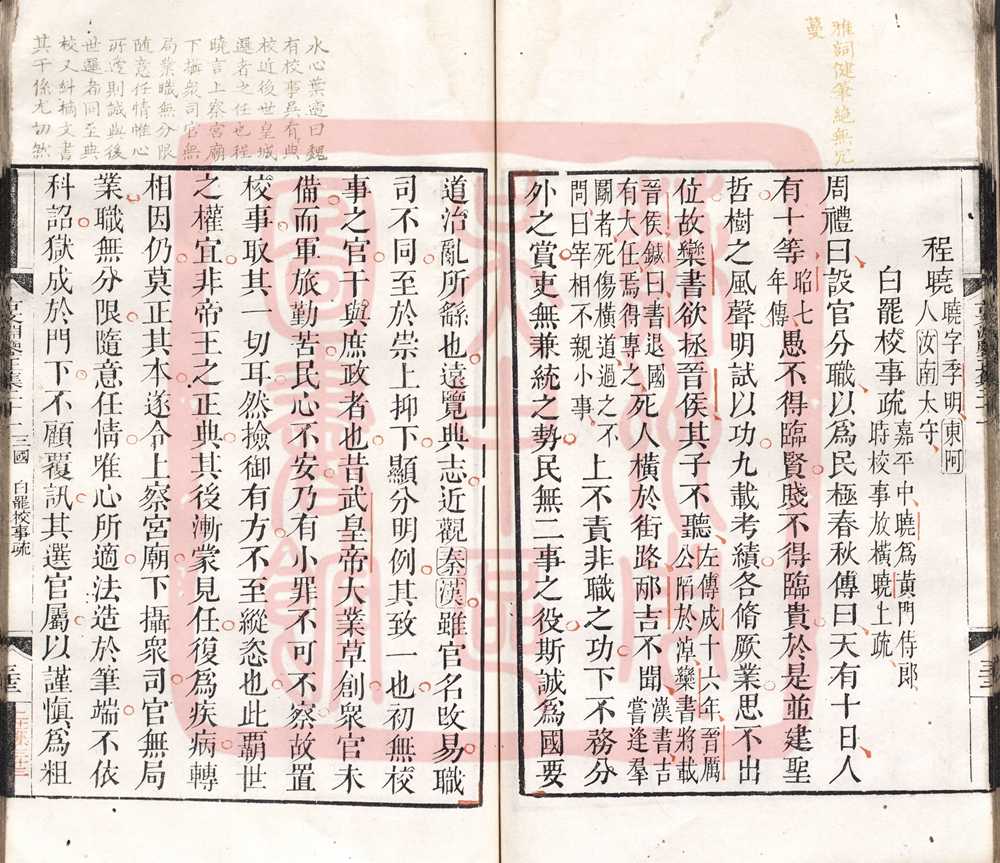 雅詞健筆絕無冗
蔓
程曉
曉字季明東阿
人汝南太守
白罷校事疏
嘉平中曉爲黃門侍郎
時校事放橫曉上疏
周禮曰設官分職以爲民極春秋傳曰天有十日人
有十等
昭七
年傳
愚不得臨賢賤不得臨貴於是並建聖
哲樹之風聲明試以功九載考績各脩厥業思不出
位故欒書欲拯晉侯其子不聽
左傳成十六年晉厲
公陷於淖欒書將載
晉侯鍼曰書退國
有大任焉得專之
死人橫於街路邴吉不聞
漢書吉
嘗逢羣
鬭者死傷橫道過之不
問曰宰相不親小事
上不責非職之功下不務分
外之賞吏無兼統之勢民無二事之役斯誠爲國要
水心葉適曰魏
有校事吳有典
校近後世皇城
邏者之任也程
曉言上察宮廟
下攝衆司官無
局業職無分限
隨意任情惟心
所適則誠與後
世邏者同至典
校又糾擿文書
其干係尤切然
道治亂所繇也遠覽典志近觀秦漢雖官名改易職
司不同至於崇上抑下顯分明例其致一也初無校
事之官干與庶政者也昔武皇帝大業草創衆官未
備而軍旅勤苦民心不安乃有小罪不可不察故置
校事取其一切耳然撿御有方不至縱恣也此覇世
之權宜非帝王之正典其後漸蒙見任復爲疾病轉
相因仍莫正其本遂令上察宮廟下攝衆司官無局
業職無分限隨意任情唯心所適法造於筆端不依
科詔獄成於門下不顧覆訊其選官屬以謹愼爲粗
三國
白罷校事疏